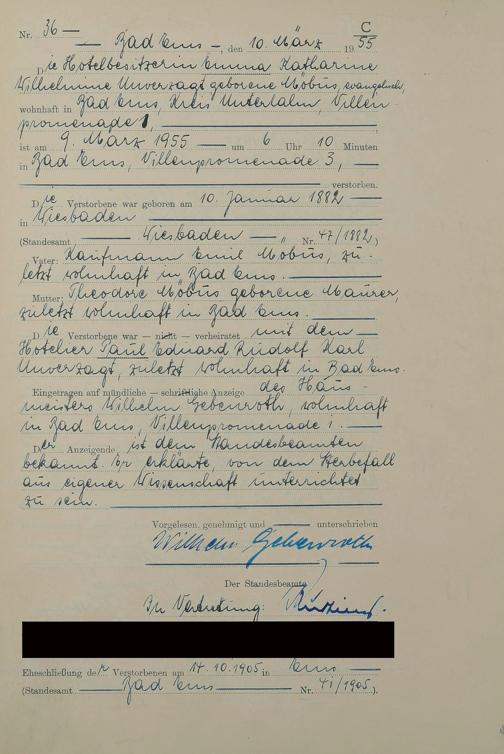 Nr. 36 — C
— Bad Ems —, den 10. März 1955
Die Hotelbesitzerin Emma Katharine
Wilhelmine Unverzagt geborene Möbus, evangelisch,
wohnhaft in Bad Ems, Kreis Unterlahn, Villen-
promenade 1, —
ist am 9. März 1955 — um 6 Uhr 10 Minuten
in Bad Ems, Villenpromenade 3, —
— verstorben.
Die Verstorbene war geboren am 10. Januar 1882 —
in Wiesbaden —
(Standesamt — Wiesbaden — " Nr. 47/1882.)
Vater: Kaufmann Emil Möbus, zu-
letzt wohnhaft in Bad Ems. —
Mutter: Theodore Möbus geborene Maurer,
zuletzt wohnhaft in Bad Ems. —
Die Verstorbene war — nicht — verheiratet mit dem —
Hotelier Paul Eduard Rudolf Karl
Unverzagt, zuletzt wohnhaft in Bad Ems.
Eingetragen auf mündliche — schriftliche Anzeige des Haus-
meisters Wilhelm Gebenroth, wohnhaft
in Bad Ems, Villenpromenade 1. —
Der Anzeigende ist dem Standesbeamten
bekannt. Er erklärte, von dem Sterbefall
aus eigener Wissenschaft unterrichtet
zu sein. —
Vorgelesen, genehmigt und — unterschrieben
Wilhelm Gebenroth
Der Standesbeamte
In Vertretung:
Eheschließung der Verstorbenen am 14.10.1905 in Ems —
(Standesamt — Bad Ems — Nr. 41/1905.).